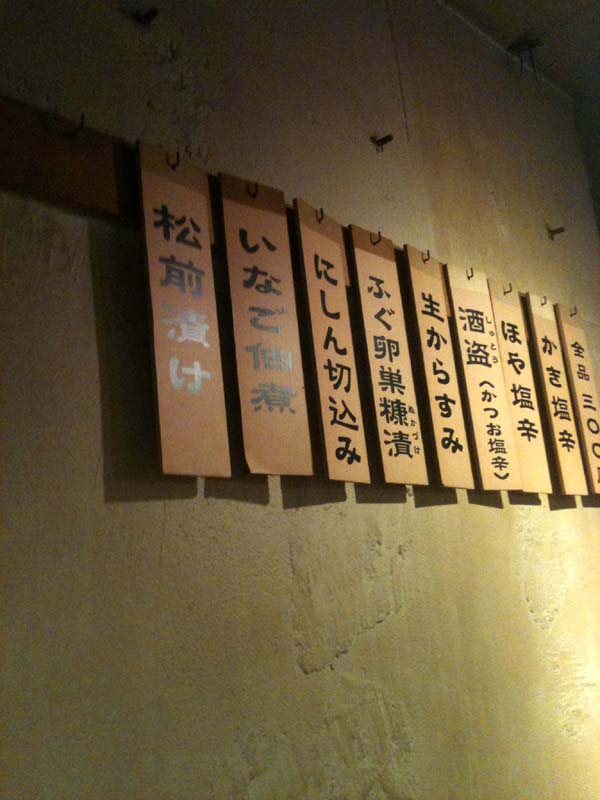 全品 三〇〇
かき塩辛
ほや塩辛
酒盗(かつお塩辛)
しゅとう
生からすみ
ふぐ卵巣糠漬
ぬかづけ
にしん切込み
いなご佃煮
松前漬け